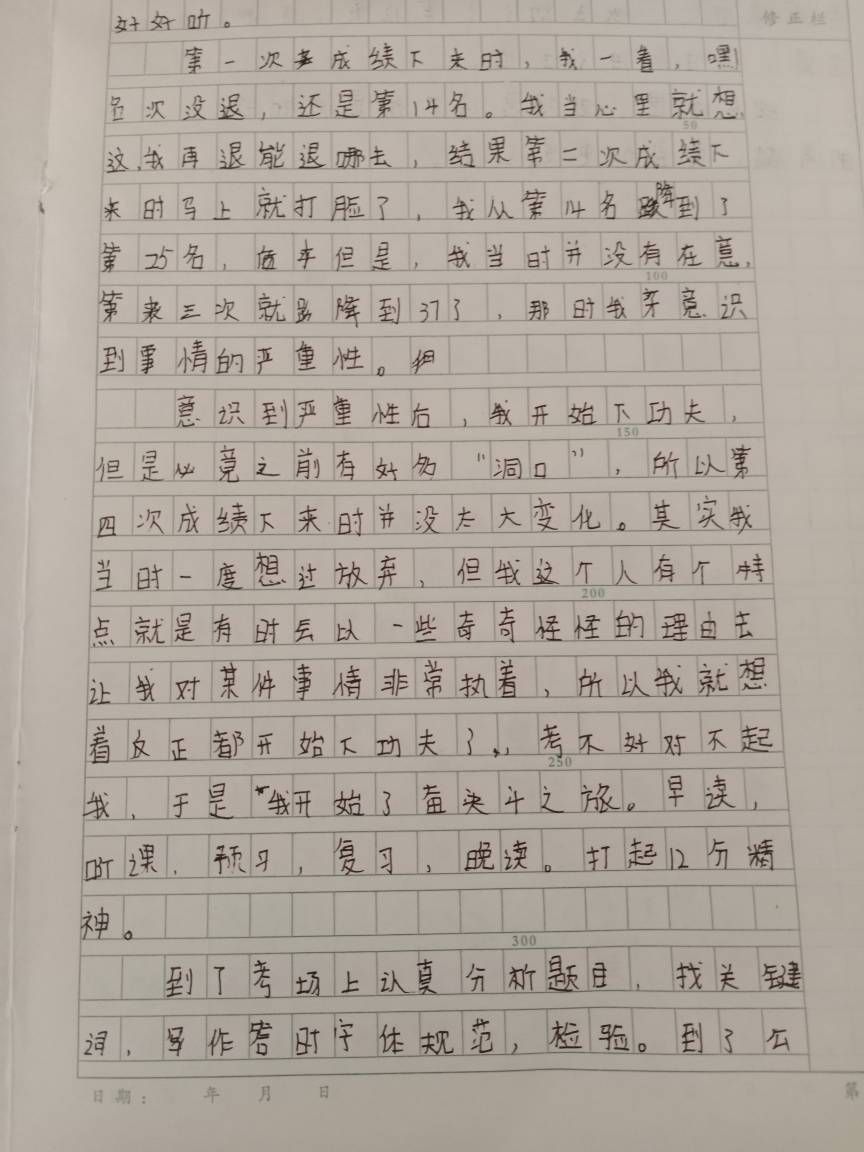 好好听。
修正栏
第一次考成绩下来时，我一看，嘿
名次没退，还是第14名。我当心里就想，
50
这，我再退能退哪去，结果第二次成绩下
来时马上就打脸了，我从第14名降到了
第25名，但是，我当时并没有在意，
100
第三次就降到37了，那时我才意识
到事情的严重性。但
意识到严重性后，我开始下功夫，
150
但是必竟之前有好多“洞口”，所以第
四次成绩下来时并没太大变化。其实我
当时一度想过放弃，但我这个人有个特
200
点就是有时会以一些奇奇怪怪的理由去
让我对某件事情非常执着，所以我就想
着反正都开始下功夫了，考不好对不起
250
我，于是我开始了奋斗之旅。早读，
听课，预习，复习，晚读。打起12分精
神。
300
到了考场上认真分析题目，找关键
词，写作答时字体规范，检验。到了公
日期： 年 月 日 第